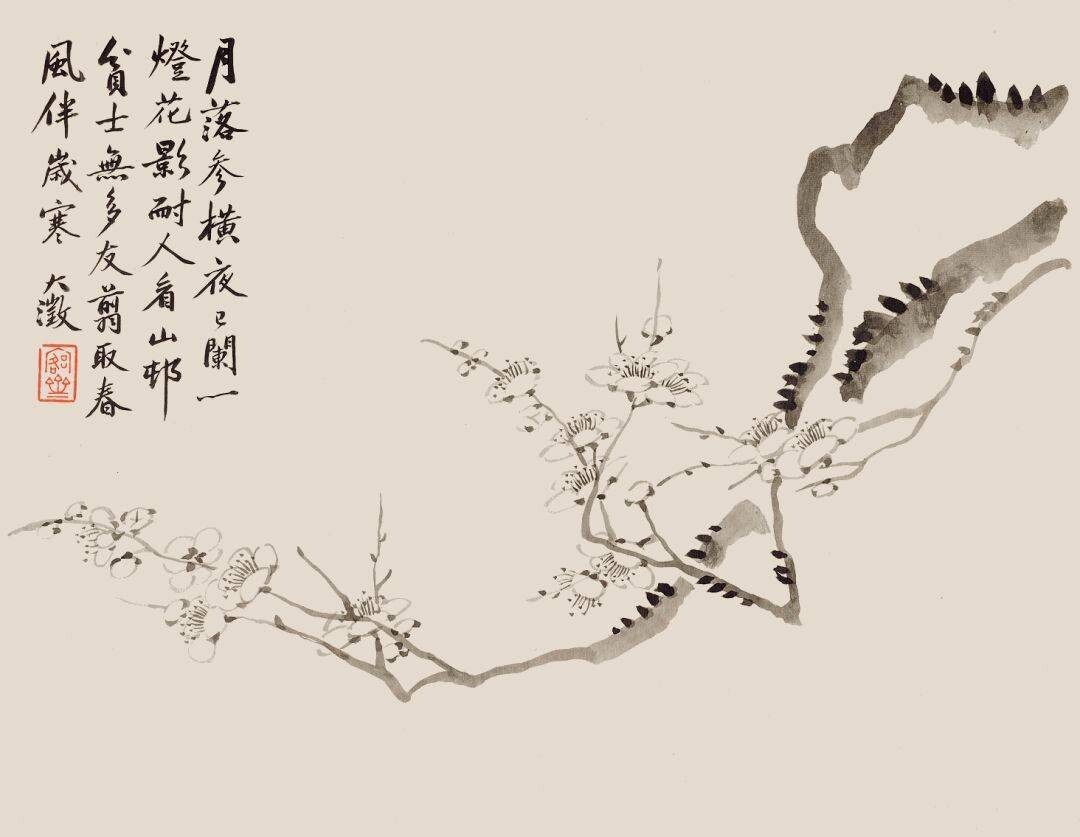 月落参橫夜已闌一
燈花影耐人看山邨
貧士無多友翦取春
風伴嵗寒
大澂
愙齋